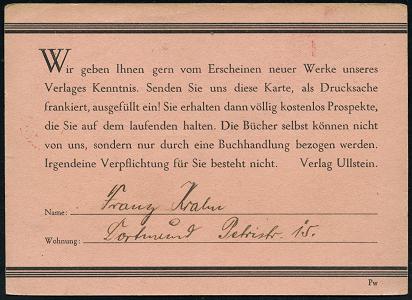 Wir geben Ihnen gern vom Erscheinen neuer Werke unseres
Verlages Kenntnis. Senden Sie uns diese Karte, als Drucksache
frankiert, ausgefüllt ein! Sie erhalten dann völlig kostenlos Prospekte,
die Sie auf dem laufenden halten. Die Bücher selbst können nicht
von uns, sondern nur durch eine Buchhandlung bezogen werden.
Irgendeine Verpflichtung für Sie besteht nicht. Verlag Ullstein.
Name: Franz
Wohnung: Dortmund Petristr. 15.
Pw